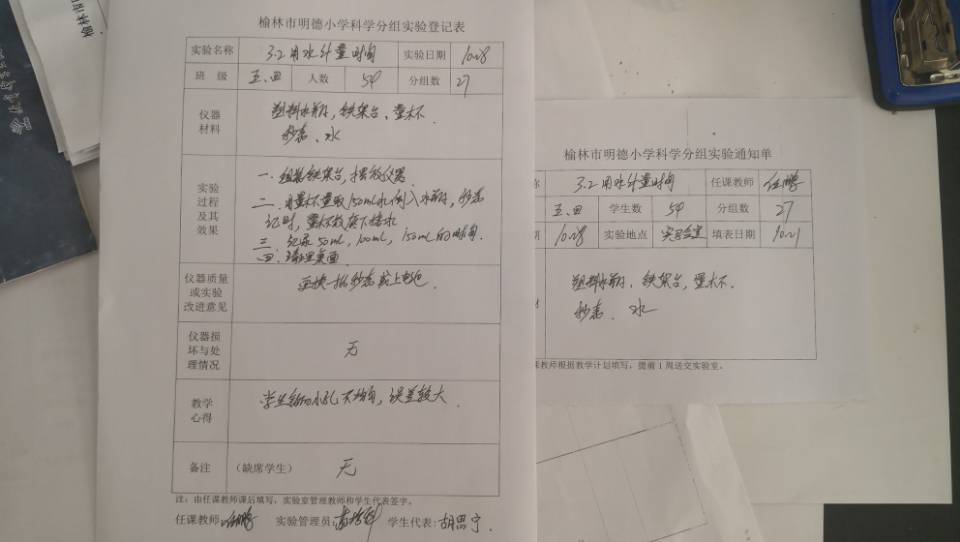 榆林市明德小学科学分组实验登记表
实验名称 3.2用水计量时间 实验日期 10.28
班 级 五.四 人数 54 分组数 27
仪器材料 塑料水瓶, 铁架台、量杯、
秒表、水
实验过程及其效果 一. 组装铁架台, 摆放仪器
二. 用量杯量取150mL水倒入水瓶, 秒表
记时, 量杯放在下接水
三. 记录50mL, 100mL, 150mL的时间.
四. 清理桌面
仪器质量或实验改进意见 更换一批秒表或上电池.
仪器损坏与处理情况 无
教学心得 学生钻的小孔不均匀, 误差较大.
备注 (缺席学生) 无
注:由任课教师课后填写,实验室管理教师和学生代表签字。
任课教师: 实验管理员: 学生代表:胡思宁.
榆林市明德小学科学分组实验通知单
称 3.2用水计量时间 任课教师 任鹏
五.四 学生数 54 分组数 27
期 10.28 实验地点 实验室 填表日期 10.21
塑料水瓶、铁架台, 量杯、
秒表、水
课教师根据教学计划填写,提前1周送交实验室。
榆林市